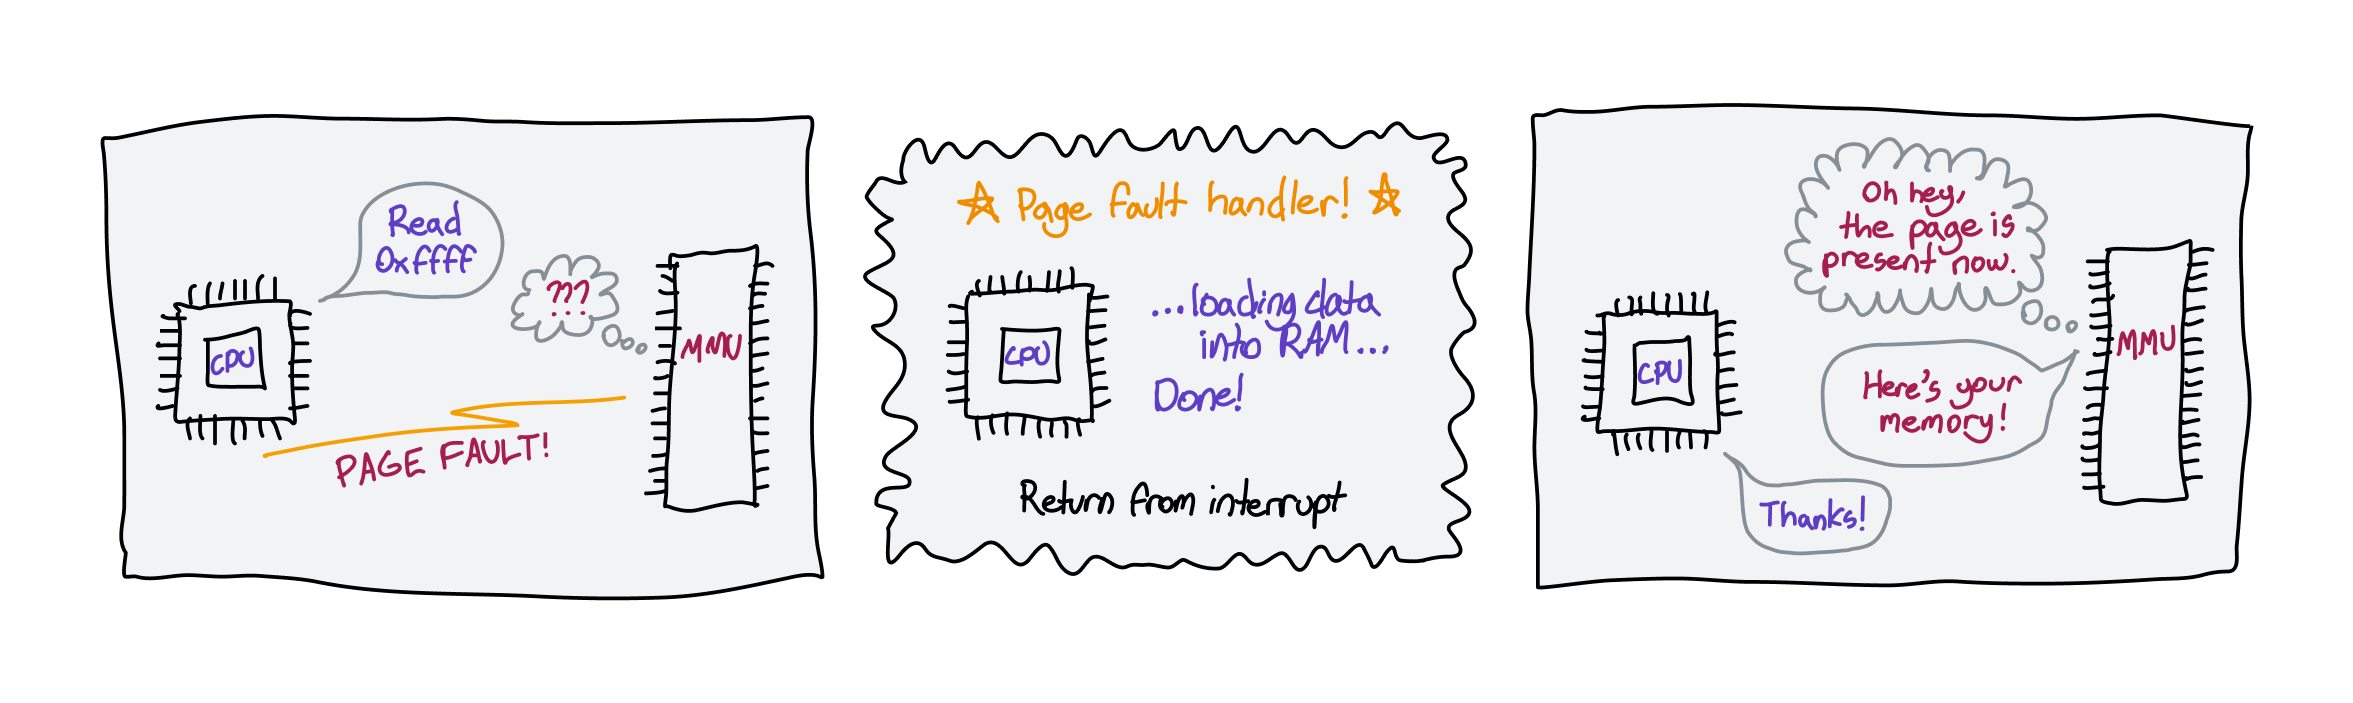 Read
0xffff
???
CPU
MMU
PAGE FAULT!
Page fault handler!
...loading data
into RAM...
CPU
Done!
Return from interrupt
Oh hey,
the page is
present now.
MMU
CPU
Here's your
memory!
Thanks!